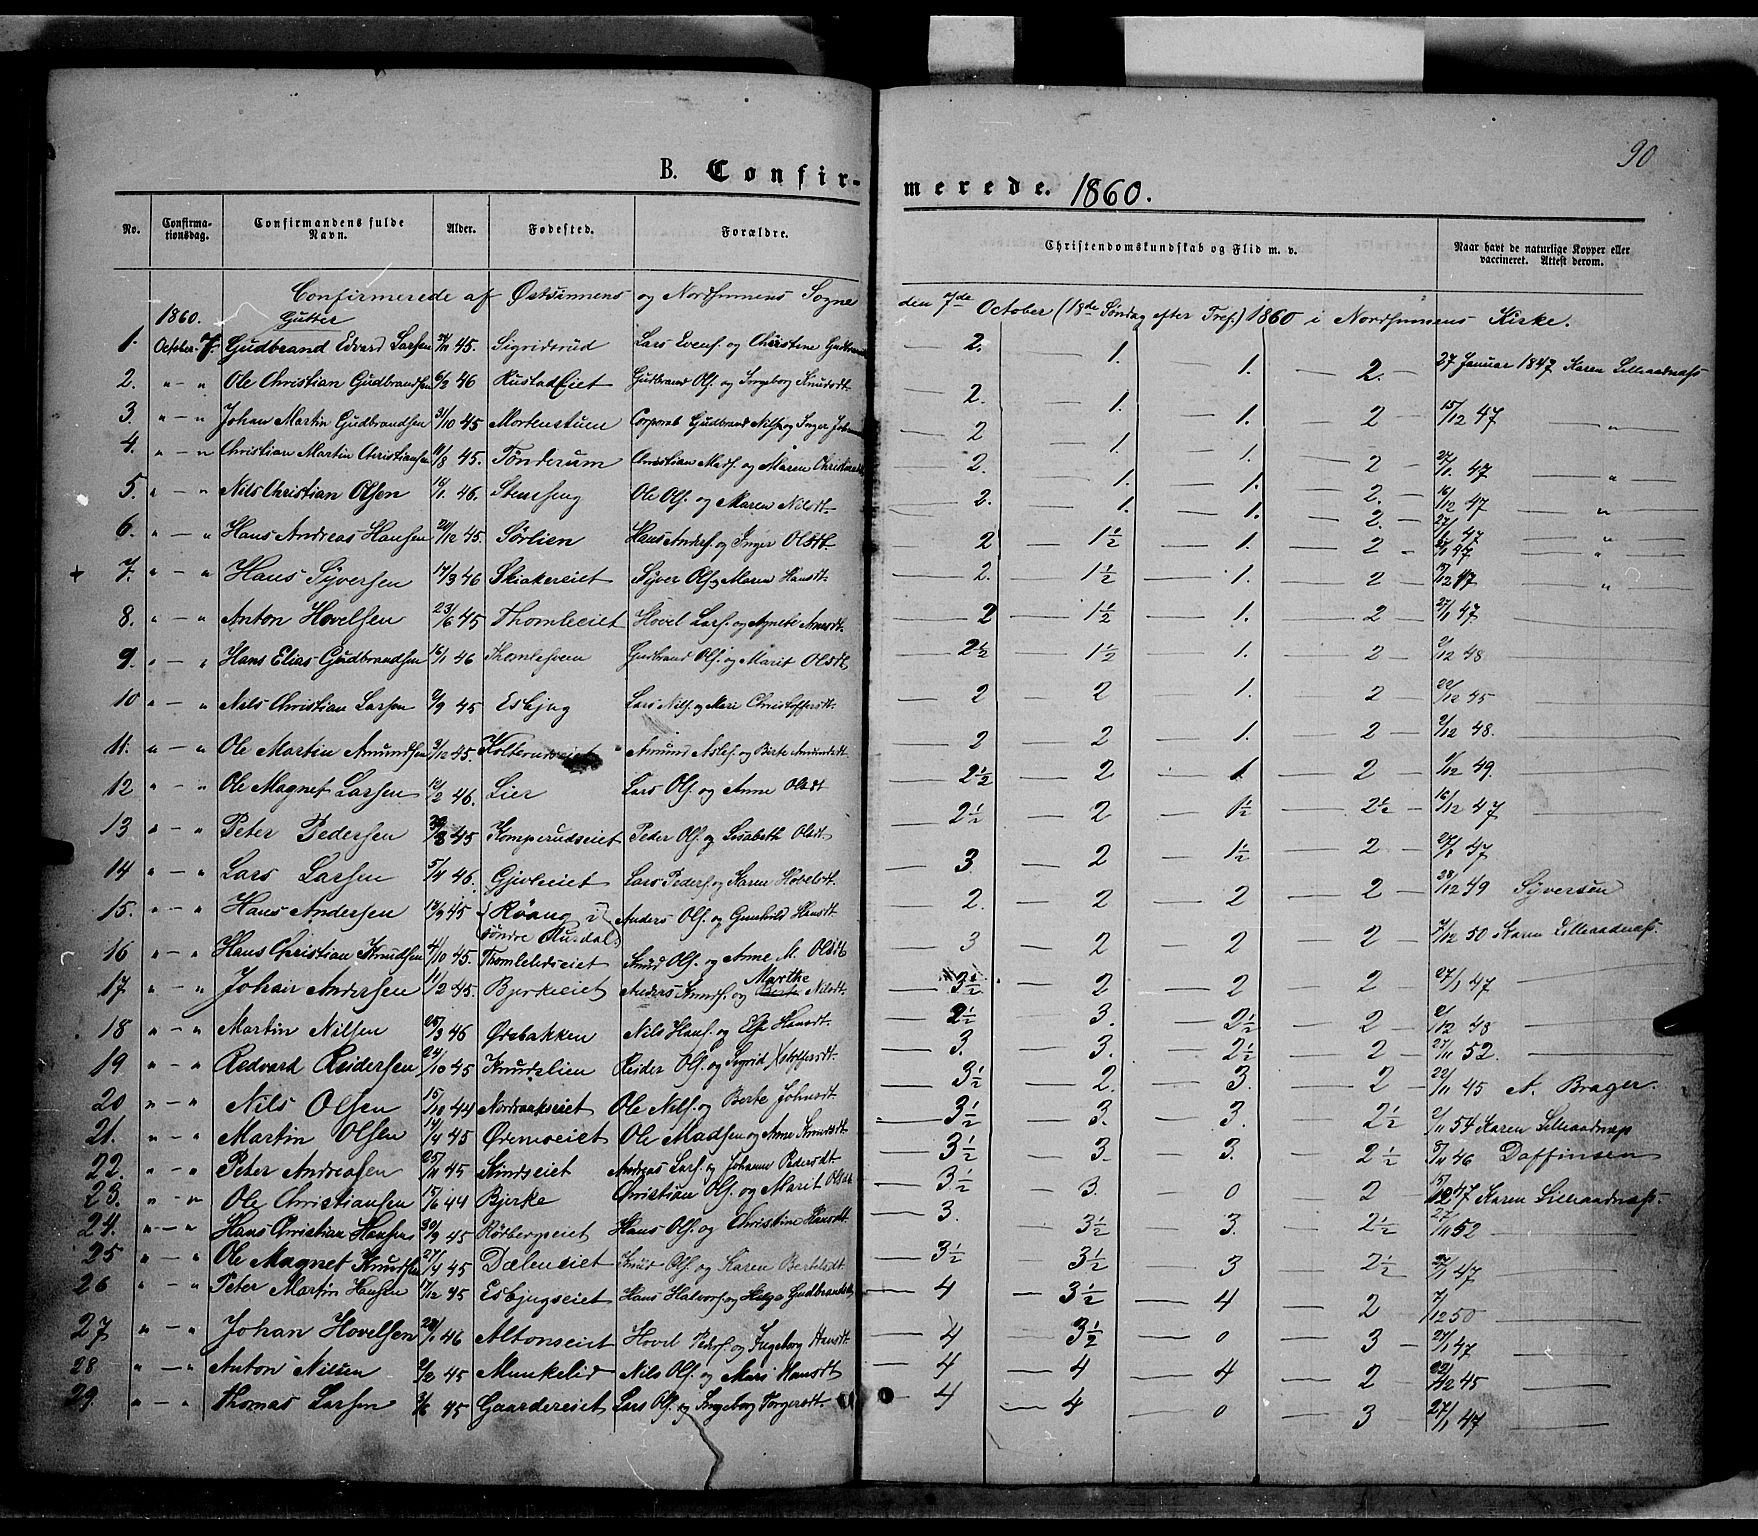 90
B. Confirmerede. 1860.
No. Confirmationsdag. Confirmandens fulde Navn. Alder. Fødested. Forældre. Christendomskundskab og Flid m. v. Naar havt de naturlige Kopper eller vaccineret. Attest derom.
Confirmerede af Østsinnens og Nordsinnens Sogne den 7de October (18de Søndag efter Tref.) 1860 i Nordsinnens Kirke.
1860. Gutter
1. October 7. Gudbrand Edvard Larsen 45. Sigridsrud Lars Evens. og Christine 2. 1. 1. 2. 27 Januar 1847 Karen Lilleaadnæss
2. " - " Ole Christian Gudbrandsen 6/3 46 Rustadeiet Gudbrand Ols. og Ingeborg Knudsdt. 2. 1. 1. 2 15/12 47 "
3. " - " Johan Martin Gudbrandsen 31/10 45 Mortenstuen Corporal Gudbrand Nils. og Inger 2 1. 1. 2 27/1 47 "
4. " - " Christian Martin Christiansen 11/8 45. Tønderum Christian Mads. og Maren 2. 1. 1. 2. 16/12 47 "
5. " - " Nils Christian Olsen 18/1 46. Stenseng Ole Ols. og Maren Nilsdt. 2. 1. 1. 2. 27/1 47 "
6. " - " Hans Andreas Hansen 45. Sørlien Hans Anders. og Inger Olsdt. 2 1½ 1. 2 47 "
7. " - " Hans Syversen 17/3 46 Skiakereiet Syver Ols. Maren Hansdt. 2. 1½ 1. 2 47 "
8. " - " Anton Hovelsen 23/6 45 Thomleeiet Hovel Lars. og Agnete 2 1½ 1. 2 27/1 47
9. " - " Hans Elias Gudbrandsen 16/1 46 Gudbrand Ols. og Marit Olsdt. 2½ 1½ 1. 2 /12 48
10 " - " Nils Christian Larsen /9 45 Esbjug Lars Nils. og Mari Christoffersdt. 2 2 1. 2 22/12 45
11. " - " Ole Martin Amundsen 3/12 45. Amund Aslef. og Berte Amundsdt. 2 2 1. 2 /12 48.
12 " - " Ole Magnet Larsen /2 46. Lier Lars Ols. og Anne Olsdt 2½ 2 1. 2 /12 49.
13 " - " Peter Pedersen 45 Komperudseiet Peder Ols. og Lisabeth Olsdt. 2½ 2 1½ 2½ 16/12 47
14 " - " Lars Larsen 5/4 46. Gjivleeiet Lars Peders. og Karen Hovelsdt. 3 2 1½ 2 47
15. " - " Hans Andersen 45 Røang i søndre Aurdal Anders Ols. og Gunhild Hansdt. 2. 2 2 2 28/12 49 Syversen
16 " - " Hans Christian Knudsen 4/10 45. Knud Ols. og Anne M. Olsdt 3 2 2 2 7/12 50 Karen Lilleaadnæss.
17. " - " Johan Andersen 11/2 45. Bjerkeeiet Anders Amunds. og Marthe Nilsdt. 3½ 2 2 2 27/1 47
18 " - " Martin Nilsen 25/3 46 Øvsbakken Nils Hans. og Else Hansdt. 2½ 3. 2½ 2 /12 48
19 " - " Redvard Reidersen 24/10 45 Knudslien Reider Ols. og Sigrid Xstoffersdt. 3. 3. 2½ 2 27/11 52.
20 " - " Nils Olsen 15/10 44 Nordraakseiet Ole Nils. og Berte Johnsdt. 3½ 2. 3. 2 22/11 45 A. Brager.
21. " - " Martin Olsen 14/4 45 Øvemoeiet Ole Madsen og Anne 3½ 3. 3. 2½ 2/11 54 Karen Lilleaadnæss
22. " - " Peter Andreasen 25/11 45 Kindseiet Andreas Lars. og Johanne Pedersdt. 3½ 3. 3. 2½ 8/11 46 Doffinsen
23. " - " Ole Christiansen 15/6 44 Bjerke Christian Ols. og Marit 3½ 3. 0 2 15/12 47 Karen Lilleaadnæss.
24. " - " Hans Christian Hansen 30/9 45 Rørbergseiet Hans Ols. og Christine Hansdt. 3. 3½ 3. 2½ 27/11 52
25 " - " Ole Magnet Knudsen 27/4 45 Dæleneiet Knud Ols. og Karen Bertelsdt 3½ 3½ 3 2½ 27/1 47
26 " - " Peter Martin Hansen 17/12 45 Esbjugseiet Hans Halvors. og Helga 4 3½ 4 2 7/12 50
27 " - " Johan Hovelsen 28/1 46 Altonseiet Hovel Peders. og Ingeborg Hansdt. 4 3½ 0 3 27/1 47
28 " - " Anton Nilsen 2/2 45 Munkelid Nils Ols. og Mari Hansdt. 4 4 4 2 22/12 45
29. " - " Thomas Larsen 3/6 45 Gaardereiet Lars Ols. og Ingeborg Torgersdt. 4 4 0 3 27/1 47